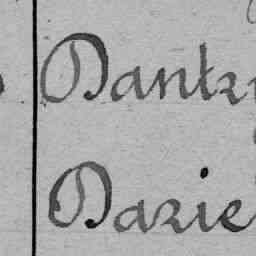 Dantz
Dazie